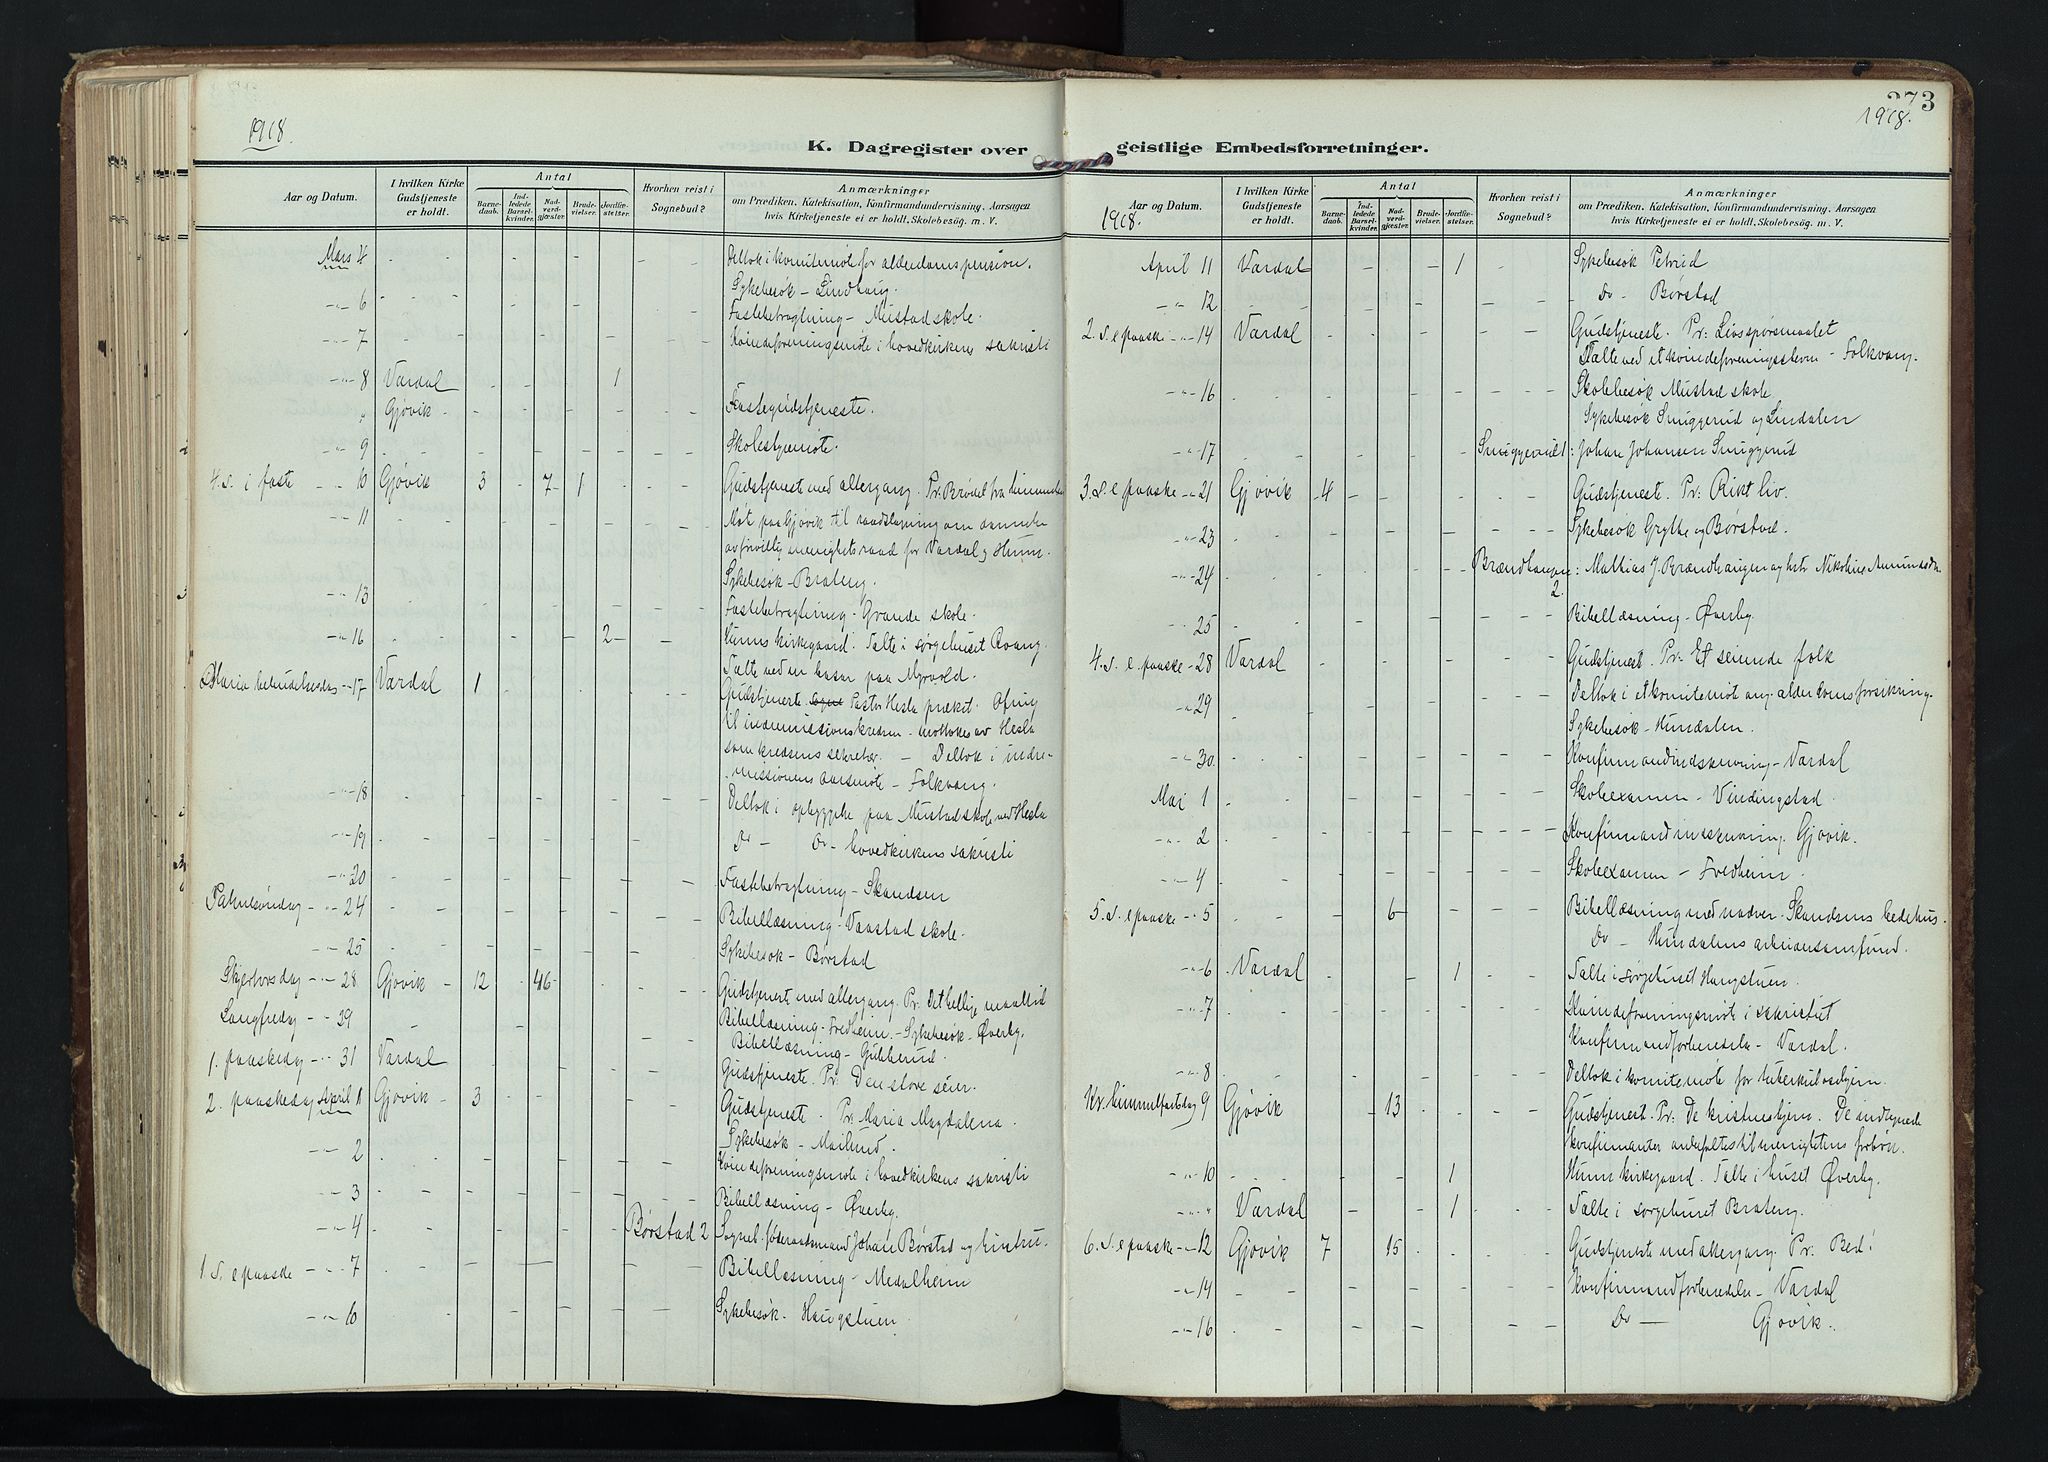 1918.
K. Dagregister over
Aar og Datum.
I hvilken Kirke Gudstjeneste er holdt.
Antal
Barnedaab.
Indledede Barselkvinder.
Nadverdgjæster.
Brudevielser.
Jordfæstelser.
Hvorhen reist i Sognebud?
Anmærkninger
om Prædiken, Katekisation, Konfirmandundervisning, Aarsagen
hvis Kirketjeneste ei er holdt, Skolebesøg. m. V.
Mars 4 Deltok i komitemøte for alderdomspension.
Sykebesøk - Lindhaug.
-"- 6 Fastebetragtning - Mustad skole.
-"- 7 Kvindeforeningsmøte i hovedkirkens sakristi
-"- 8 Vardal 1
" Gjøvik Fastegudstjeneste.
" 9 Skolestyremøte.
4. s. i faste - - 10 Gjøvik 3 7 1 Gudstjeneste med altergang. Pr: Brødet fra himmelen
-"- 11 Møt paa Gjøvik til raadslagning om
av frivillig menighetsraad for Vardal og Hunn.
Sykebesøk - Brateng.
-"- 13 Fastebetragtning - Grande skole.
-"- 16 2 Hunns kirkegaard. Talte i sørgehuset
Talte ved en basar paa Myrvold.
Maria bebudelsesdag -"- 17 Vardal 1 Gudstjeneste. Pastor Hesla præket. Ofring
til indremissionskredsen - mottokes av Hesla
som kredsens sekretær. - Deltok i indre-
missionens aarsmøte - Folkvang.
-"- 18 Deltok i opbyggelse paa Mustad skole ved Hesla
-"- 19 Do - Do - hovedkirkens sakristi
-"- 20 Fastebetragtning - Skandsen
Palmesøndag - "- 24 Bibellæsning - Vaastad skole.
-"- 25 Sykebesøk - Børstad
Skjærtorsdag - "- 28 Gjøvik - 12 46 Gudstjeneste med altergang. Pr: Det hellige maaltid
Langfredag - "- 29 Bibellæsning - Fredheim. - Sykebesøk - Øverby.
Bibellæsning - Gubberud.
1. paaskedag - "- 31 Vardal Gudstjeneste. Pr: Den store seier.
2. paaskedag April 1 Gjøvik - 3 Gudstjeneste. Pr: Maria Magdalena.
Sykebesøk - Mailund.
-"- 2 Kvindeforeningsmøte i hovedkirkens sakristi
-"- 3 Bibellæsning - Øverby.
-"- 4 Børstad 2 Sogneb. føderaadsmand Johan Børstad og hustru.
1 s. e paaske - "- 7 Bibellæsning - Medalheim
-"- 10 Sykebesøk - Haugstuen.
273
1918.
geistlige Embedsforretninger.
Aar og Datum.
1918.
I hvilken Kirke Gudstjeneste er holdt.
Antal
Barnedaab.
Indledede Barselkvinder.
Nadverdgjæster.
Brudevielser.
Jordfæstelser.
Hvorhen reist i Sognebud?
Anmærkninger
om Prædiken, Katekisation, Konfirmandundervisning, Aarsagen
hvis Kirketjeneste ei er holdt, Skolebesøg. m. V.
April 11 Vardal 1 Sykebesøk Petrid
-"- 12 Do - Børstad
2. s. e paaske - "- 14 Vardal Gudstjeneste. Pr: Livsspørsmaalet
Talte ved et kvindeforeningsstevne - Folkvang.
-"- 16 Skolebesøk Mustad skole
Sykebesøk Snuggerud og Lindalen
-"- 17 Snuggerud 1: Johan Johansen Snuggerud
3. s. e paaske - "- 21 Gjøvik 4 Gudstjeneste. Pr: Rikt liv.
-"- 23 Sykebesøk Grythe og Børstad.
-"- 24 Brændhaugen 2: Mathias J. Brændhaugen og hstr Nikoline Amundsdtr
-"- 25 Bibellæsning - Øverby.
4. s. e. paaske - 28 Vardal Gudstjenest. Pr: Et seiende folk
-"- 29 Deltok i et komitemøt ang. alderdomsforsikring.
Sykebesøk - Hundalen.
-"- 30 Konfirmandindskrivning - Vardal
Mai 1 Skoleexamen - Vindingstad.
-"- 2 Konfirmandinnskrivning. Gjøvik.
-"- 4 Skoleexamen - Fredheim.
5. s. e paaske - "- 5 6 Bibellæsning med nadver. Skandsens bedehus.
Do - Hundalens arbeidersamfund.
-"- 6 Vardal 1 Talte i sørgehuset Haugstuen.
-"- 7 Kvindeforeningsmøte i sakristiet
Konfirmandforberedelse - Vardal.
-"- 8 Deltok i komitemøte for tuberkulosehjem.
Kr. himmelfartsdag 9 Gjøvik 13 Gudstjenest. Pr: De kristnes hjem. De indtegnede
konfirmanter anbefaltes til menighetens forbøn.
-"- 10 1 Hunns kirkegaard. Talte i huset Øverby.
-"- " Vardal 1 Talte i sørgehuset Brateng.
6. s. e paaske - "- 12 Gjøvik 7 15 Gudstjeneste med altergang. Pr: Bed!
-"- 14 Konfirmandforberedelse - Vardal
-"- 16 Do - Gjøvik.